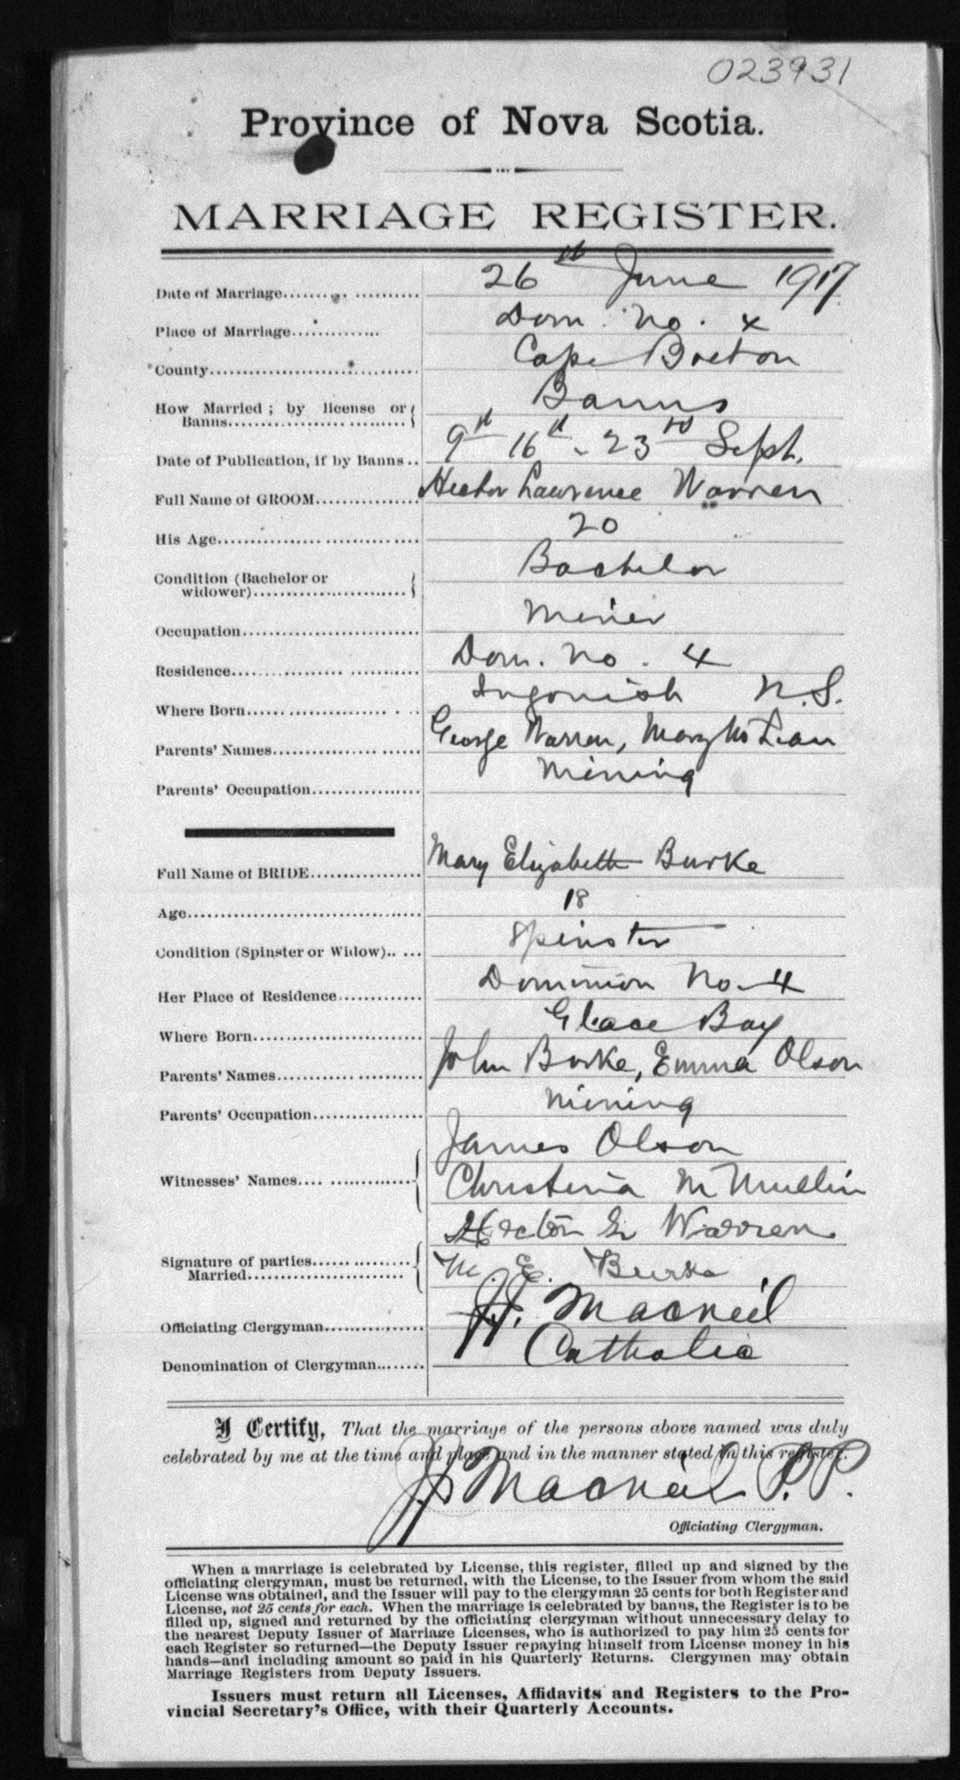 023931
Province of Nova Scotia.
MARRIAGE REGISTER.
Date of Marriage 26th June 1917
Place of Marriage Dom. No. 4
County Cape Breton
How Married ; by license or Banns Banns
Date of Publication, if by Banns 9th 16th - 23rd Sept.
Full Name of GROOM Hector Lawrence Warren
His Age 20
Condition (Bachelor or widower) Bachelor
Occupation Miner
Residence Dom. No. 4
Where Born Ingonish N.S.
Parents' Names George Warren, Mary McLean
Parents' Occupation Mining
Full Name of BRIDE Mary Elizabeth Burke
Age 18
Condition (Spinster or Widow) Spinster
Her Place of Residence Dominion No. 4
Where Born Glace Bay
Parents' Names John Burke, Emma Olson
Parents' Occupation Mining
Witnesses' Names James Olson
Christina McMullin
Signature of parties Married Hector L Warren
M. E. Burke
Officiating Clergyman J.J. Macneil
Denomination of Clergyman Catholic
I Certify, That the marriage of the persons above named was duly
celebrated by me at the time and place and in the manner stated in this register.
JJ Macneil P.P.
Officiating Clergyman.
When a marriage is celebrated by License, this register, filled up and signed by the
officiating clergyman, must be returned, with the License, to the Issuer from whom the said
License was obtained, and the Issuer will pay to the clergyman 25 cents for both Register and
License, not 25 cents for each. When the marriage is celebrated by banns, the Register is to be
filled up, signed and returned by the officiating clergyman without unnecessary delay to
the nearest Deputy Issuer of Marriage Licenses, who is authorized to pay him 25 cents for
each Register so returned—the Deputy Issuer repaying himself from License money in his
hands—and including amount so paid in his Quarterly Returns. Clergymen may obtain
Marriage Registers from Deputy Issuers.
Issuers must return all Licenses, Affidavits and Registers to the Pro-
vincial Secretary's Office, with their Quarterly Accounts.